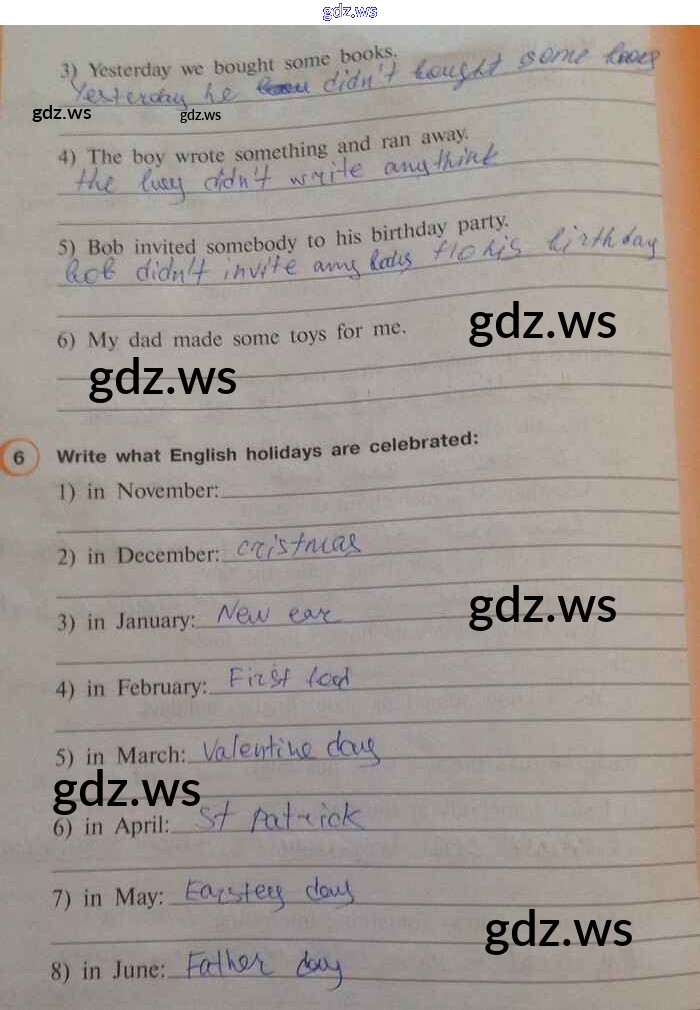 gdz.ws
3) Yesterday we bought some books.
Yesterday he didn't bought some
gdz.ws gdz.ws
4) The boy wrote something and ran away.
the didn't write anythink
5) Bob invited somebody to his birthday party.
bob didn't invite any his birthday
6) My dad made some toys for me.
gdz.ws
gdz.ws
6 Write what English holidays are celebrated:
1) in November:
2) in December: cristmas
3) in January: New ear
gdz.ws
4) in February: First
5) in March: Valentine day
gdz.ws
6) in April: St Patrick
7) in May: Earstey day
gdz.ws
8) in June: Father day